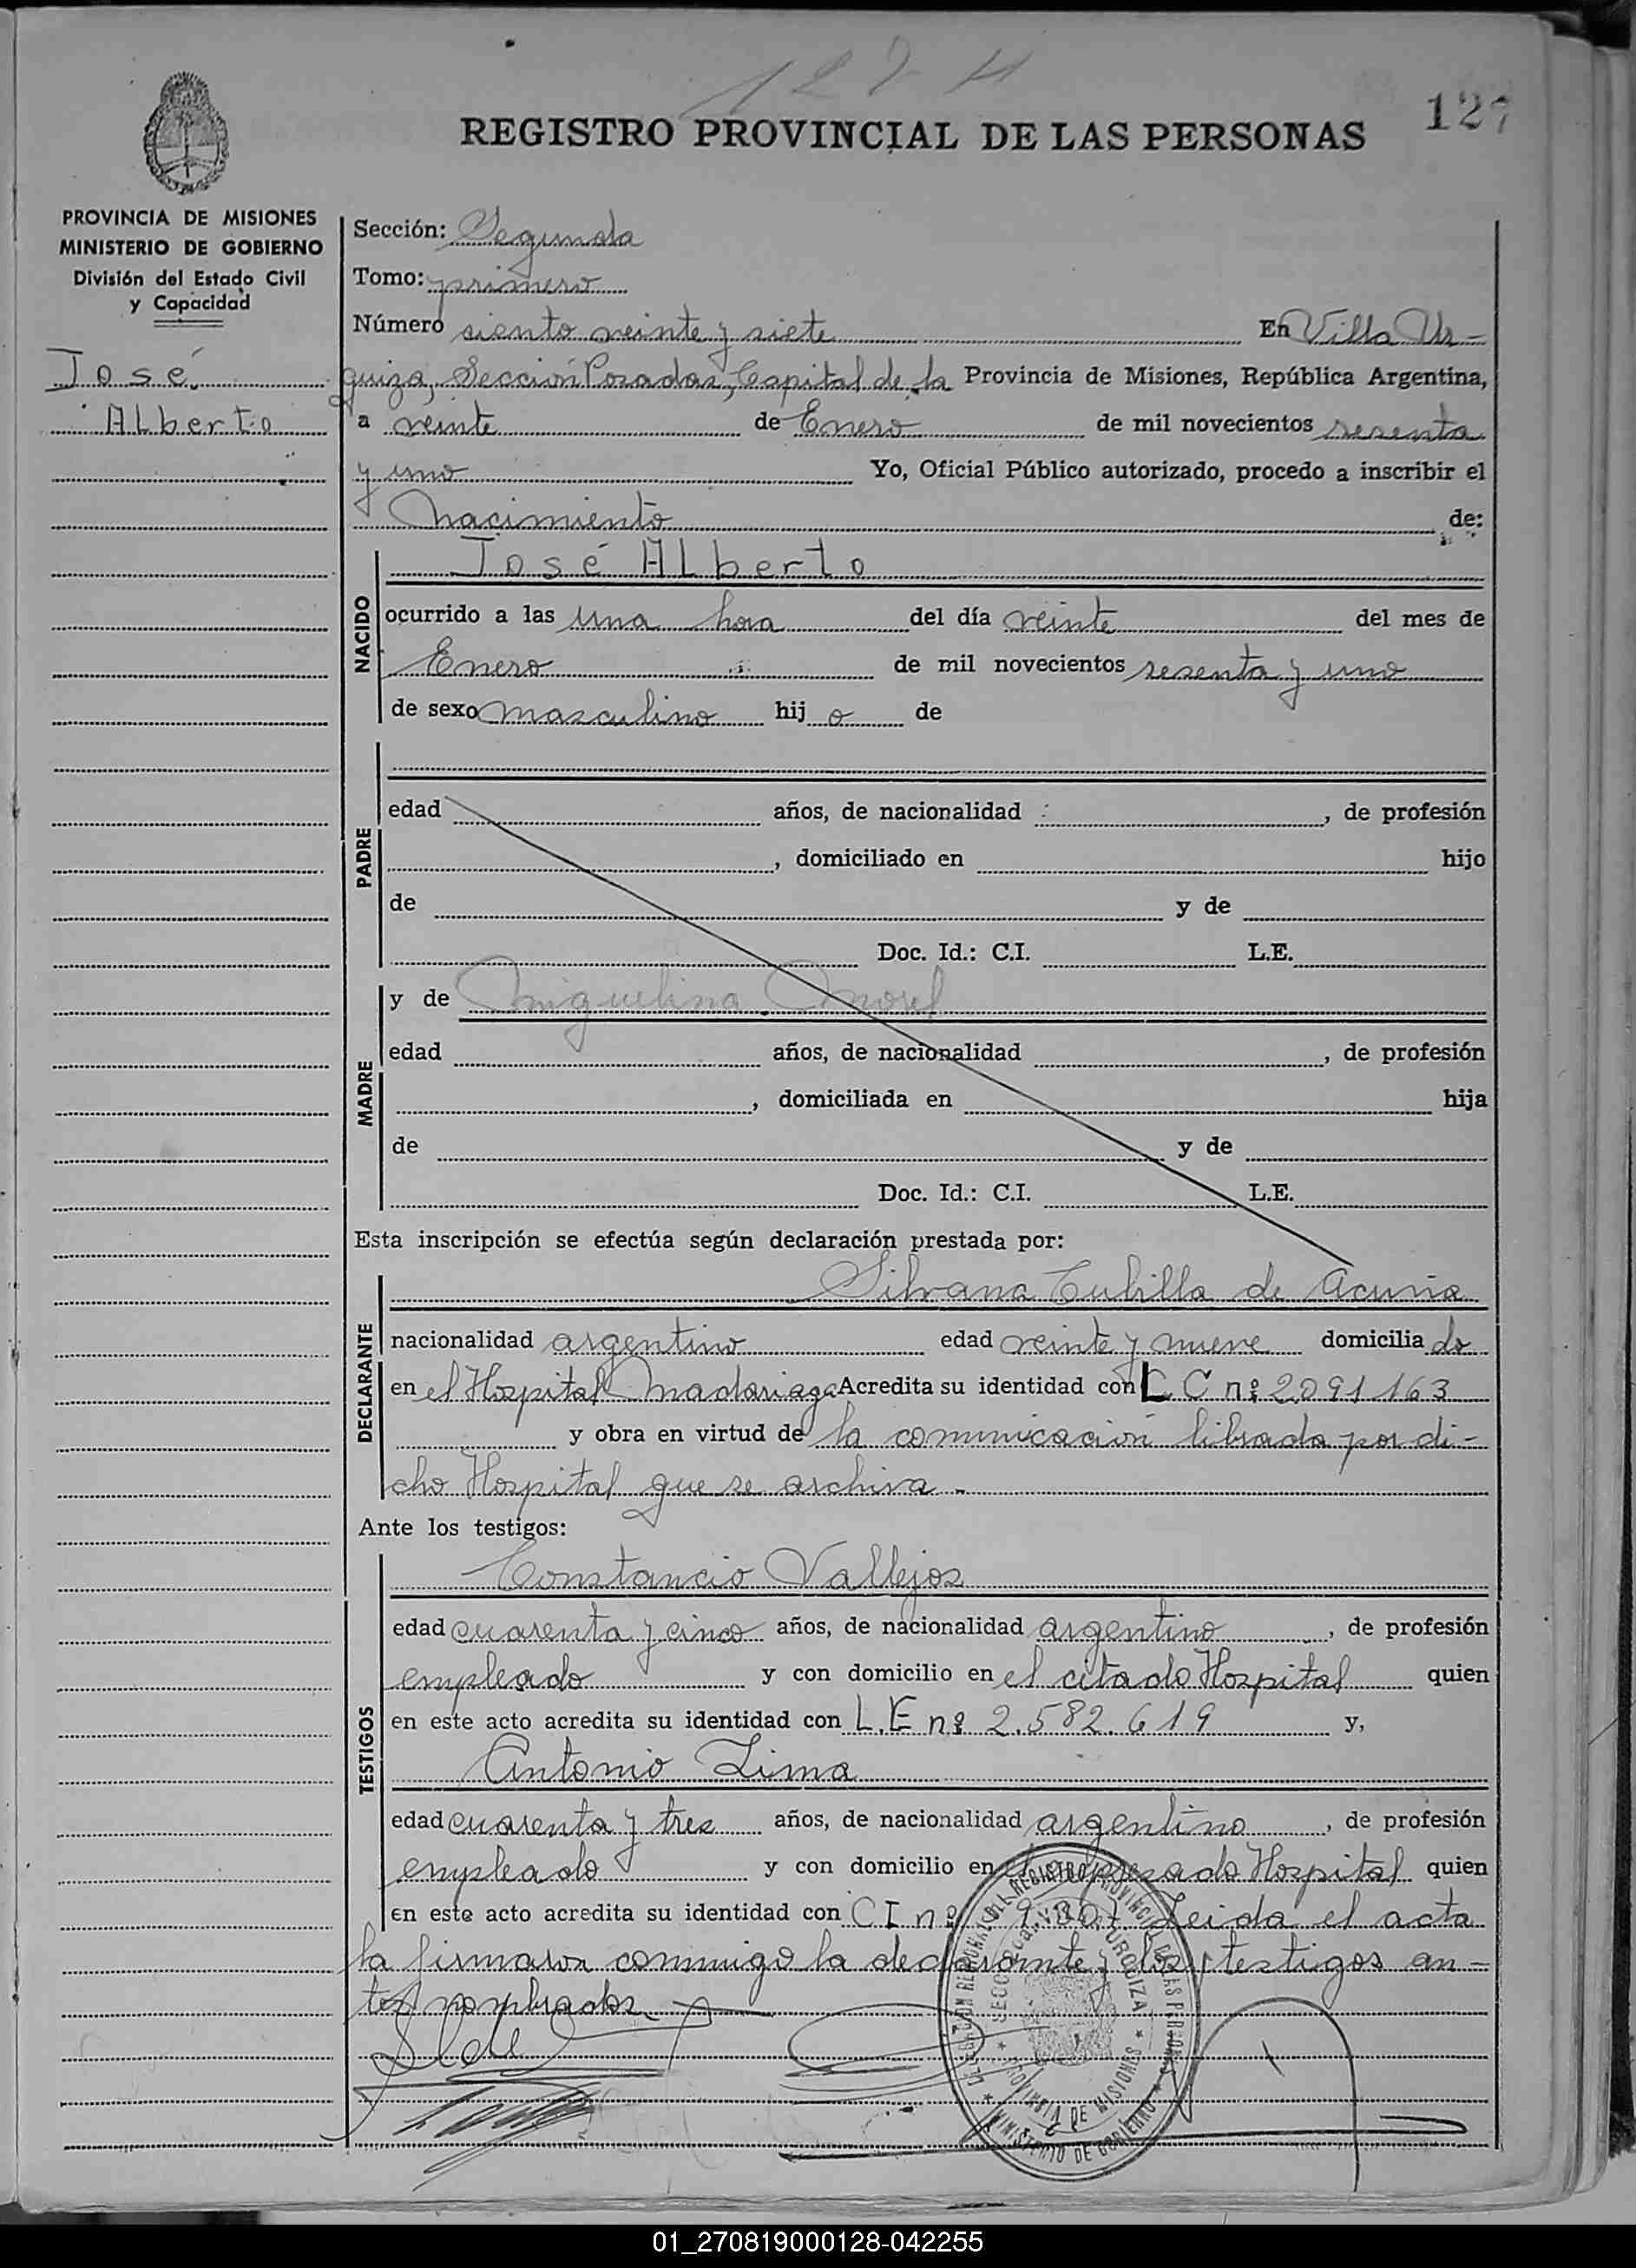 127 H
127
REGISTRO PROVINCIAL DE LAS PERSONAS
PROVINCIA DE MISIONES
MINISTERIO DE GOBIERNO
División del Estado Civil
y Capacidad
José
Alberto
Sección: Segunda
Tomo: primero
Número siento veinte y siete En Villa Ur-
quiza, Sección Posadas, Capital de la Provincia de Misiones, República Argentina,
a veinte de Enero de mil novecientos sesenta
y uno Yo, Oficial Público autorizado, procedo a inscribir el
Nacimiento de:
José Alberto
NACIDO
ocurrido a las una hora del día veinte del mes de
Enero de mil novecientos sesenta y uno
de sexo masculino hij o de
PADRE
edad años, de nacionalidad , de profesión
, domiciliado en hijo
de y de
Doc. Id.: C.I. L.E.
MADRE
y de Miguelina Morel
edad años, de nacionalidad , de profesión
, domiciliada en hija
de y de
Doc. Id.: C.I. L.E.
Esta inscripción se efectúa según declaración prestada por:
DECLARANTE
Silvana Cubilla de Acuña
nacionalidad argentino edad veinte y nueve domicilia do
en el Hospital Madariaga Acredita su identidad con L C nº 2091163
y obra en virtud de la comunicación librada por di-
cho Hospital que se archiva -
Ante los testigos:
TESTIGOS
Constancio Vallejos
edad cuarenta y cinco años, de nacionalidad argentino , de profesión
empleado y con domicilio en el citado Hospital quien
en este acto acredita su identidad con L.E nº 2.582.619 y,
Antonio Lima
edad cuarenta y tres años, de nacionalidad argentino , de profesión
empleado y con domicilio en Hospital quien
en este acto acredita su identidad con C I nº Leida el acta
la firmaron conmigo la declarante y los testigos an-
tes nombrados
REGISTRO PROVINCIAL DE LAS PERSONAS
MINISTERIO DE GOBIERNO
URQUIZA
PROVINCIA DE MISIONES
01_270819000128-042255